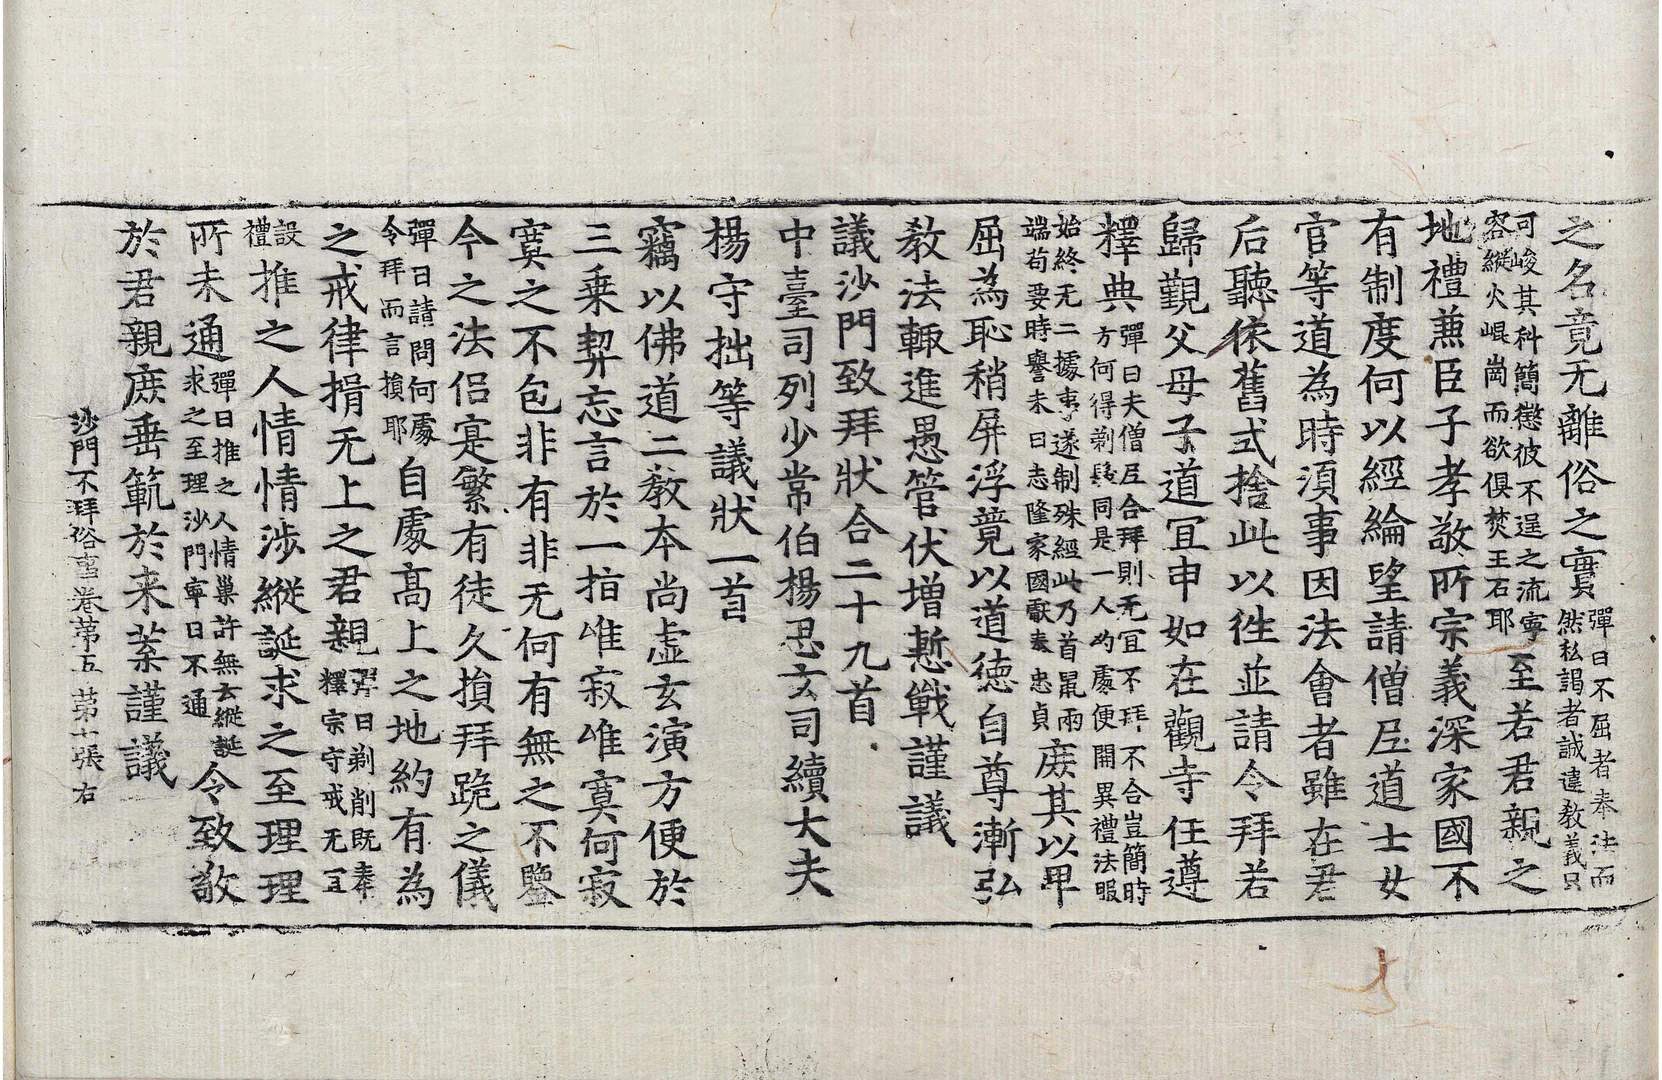 之名竟无離俗之實彈曰不屈者奉法而然私謁者誠違教義只
可峻其科簡懲彼不逞之流寧容縱火崐崗而欲俱焚玉石耶至若君親之
地禮兼臣子孝敬所宗義深家國不
有制度何以經綸望請僧尼道士女
官等道為時須事因法會者雖在君
后聽依舊式捨此以往並請令拜若
歸覲父母子道宜申如在觀寺任遵
釋典彈曰夫僧尼合拜則无宜不拜不合豈簡時方何得剃髮同是一人約處便開異禮法服
始終无二據事遂制殊經此乃首鼠兩端苟要時譽未曰志隆家國獻奏忠貞庶其以卑
屈為恥稍屏浮競以道德自尊漸弘
教法輙進愚管伏增慙戰謹議
議沙門致拜狀合二十九首
中臺司列少常伯楊思玄司續大夫
楊守拙等議狀一首
竊以佛道二教本尚虛玄演方便於
三乗契忘言於一指唯寂唯寞何寂
寞之不包非有非无何有無之不鑒
今之法侣寔繁有徒久損拜跪之儀
彈曰請問何處令拜而言損耶自處高上之地約有為
之戒律捐无上之君親彈曰剃削既奉釋宗守戒无宜
設禮推之人情情涉縱誕求之至理理
所未通彈曰推之人情巢許無玄縱誕求之至理沙門寧曰不通令致敬
於君親庶垂範於来葉謹議
沙門不拜俗事卷苐五 苐十張 右